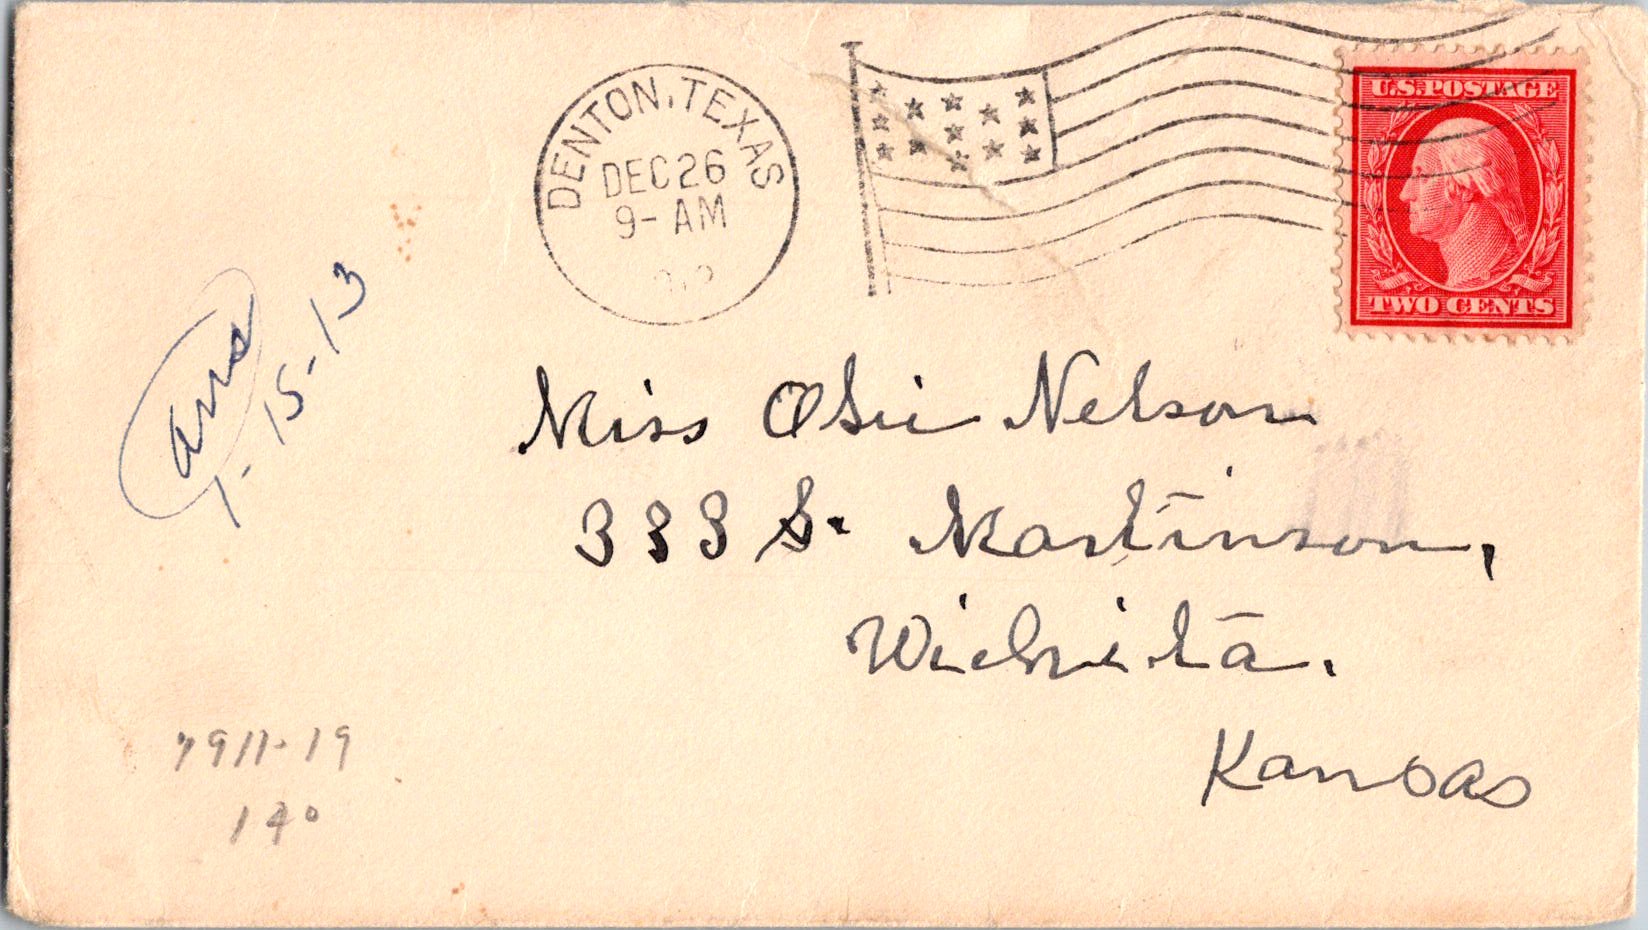 DENTON, TEXAS
DEC 26
9-AM
U.S. POSTAGE
TWO CENTS
ans
1-15-13
Miss Osie Nelson
333 S. Martinson,
Wichita.
Kansas
7911-19